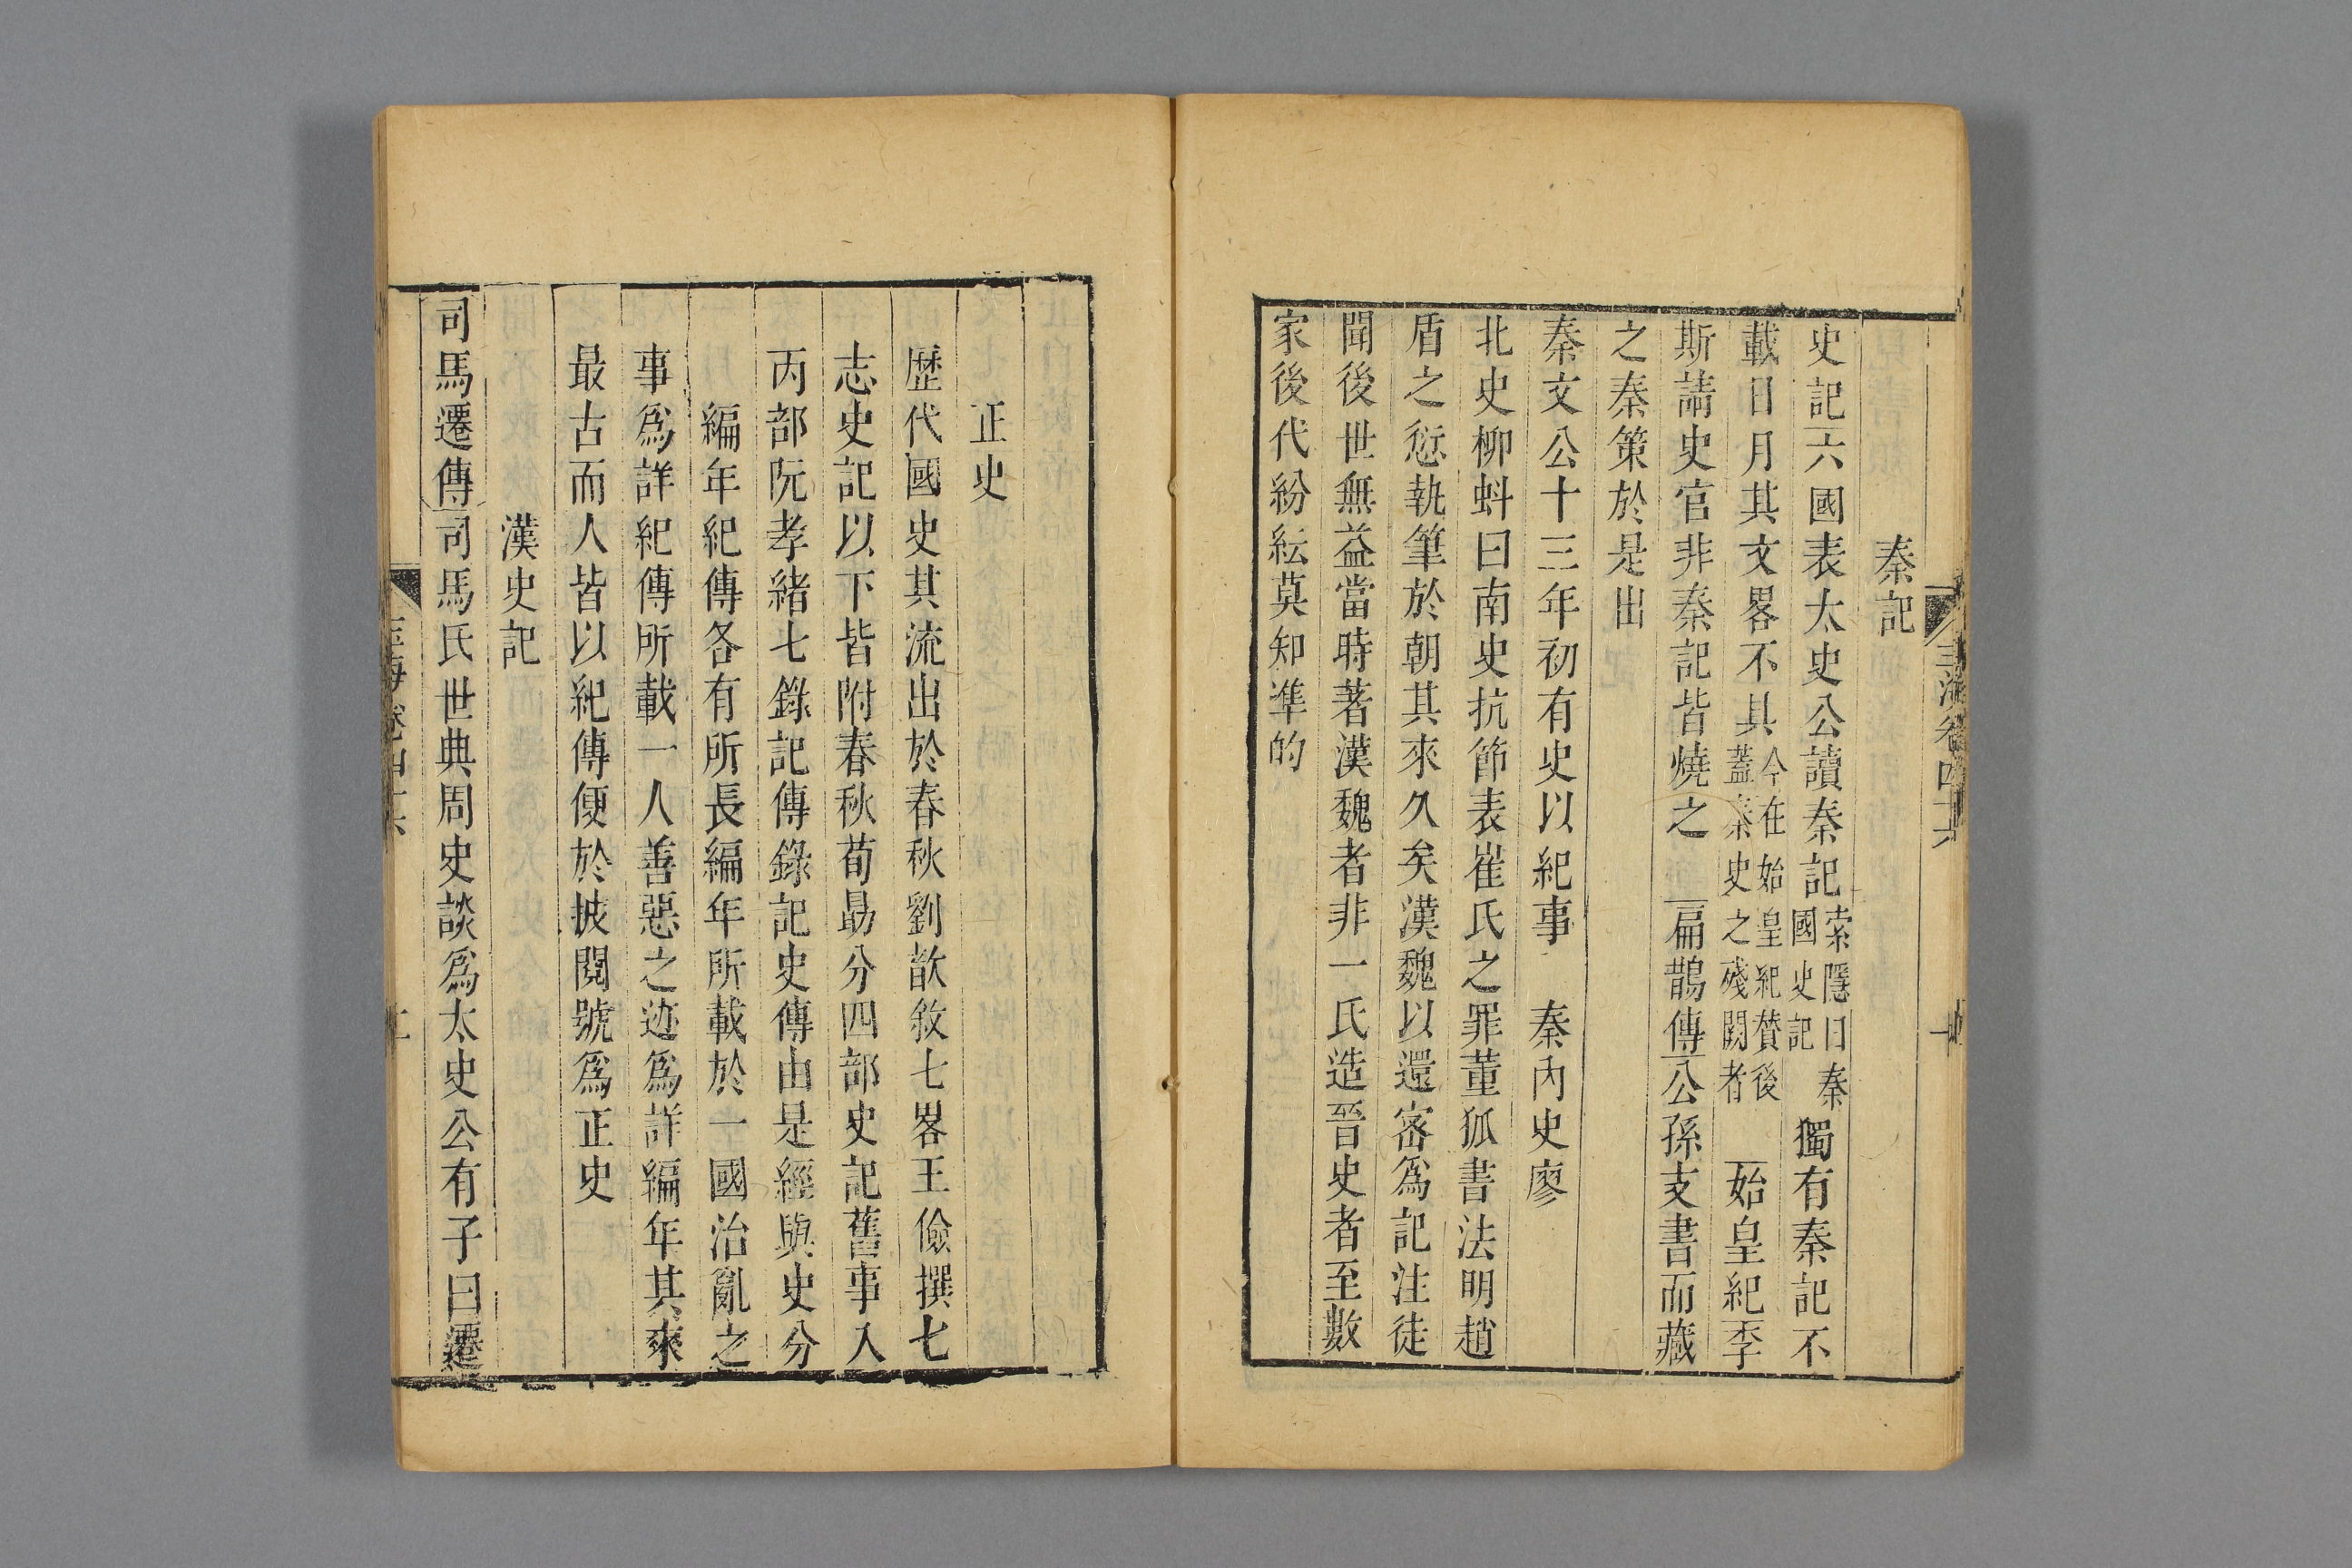 秦記
史記六國表太史公讀秦記索隱曰秦國史記獨有秦記不
載日月其文畧不具今在始皇紀賛後蓋秦史之殘闕者始皇紀李
斯請史官非秦記皆燒之扁鵲傳公孫支書而藏
之秦策於是出
秦文公十三年初有史以紀事 秦內史廖
北史柳蚪曰南史抗節表崔氏之罪董狐書法明趙
盾之愆執筆於朝其來久矣漢魏以還密爲記注徒
聞後世無益當時著漢魏者非一氏造晉史者至數
家後代紛紜莫知凖的
正史
歷代國史其流出於春秋劉歆敘七畧王儉撰七
志史記以下皆附春秋荀勗分四部史記舊事入
丙部阮孝緒七錄記傳錄記史傳由是經與史分
編年紀傳各有所長編年所載於一國治亂之
事爲詳紀傳所載一人善惡之迹爲詳編年其來
最古而人皆以紀傳便於披閱號爲正史
漢史記
司馬遷傳司馬氏世典周史談爲太史公有子曰遷